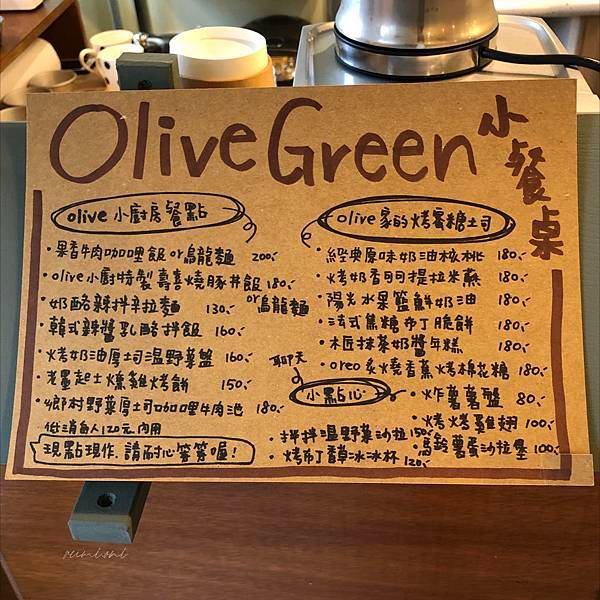 Olive Green 小餐桌
olive 小廚房餐點
・果香牛肉咖哩飯 or 烏龍麵 200、
・olive小廚特製 壽喜燒豚丼飯 180、
or烏龍麵
・奶酪辣拌辛拉麵 130、
・韓式辣醬乳酪拌飯 160、
・烤奶油厚土司溫野菜盤 160、
・老墨起士燻雞烤餅 150、
・鄉村野菜厚土司咖哩牛肉池 180、
低消每人120元 內用
現點現作，請耐心等等喔！
olive 家的烤蜜糖土司
・經典原味奶油核桃 180、
・烤奶香提拉米蘇 180、
・陽光水果籃鮮奶油 180、
・法式焦糖布丁脆餅 180、
・木匠抹茶奶醬年糕 180、
・oreo 炙燒香蕉烤棉花糖 180、
聊天
小點心
・炸薯薯盤 80、
・烤烤雞翅 100、
・馬鈴薯蛋沙拉堡 100、
・拌拌溫野菜沙拉 150、
・烤布丁冰冰杯 120、